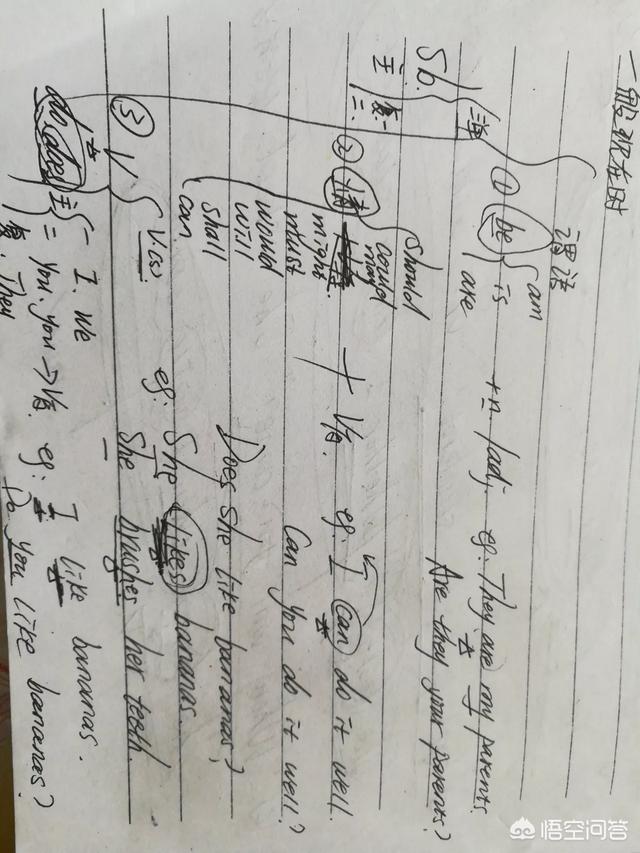 一般现在时
谓语
Sb.
主
① be { am
is
are
+n /adj. eg. They are my parents.
Are they your parents?
② 情
should
could
may
might
must
will
would
shall
can
+ V原. eg: I can do it well.
Can you do it well?
③ V
V.(s)
eg: She likes bananas.
Does she like bananas?
She brushes her teeth.
主
一 I. We
二 you. you → V原. eg: I like bananas.
They
Do you like bananas?
悟空问答